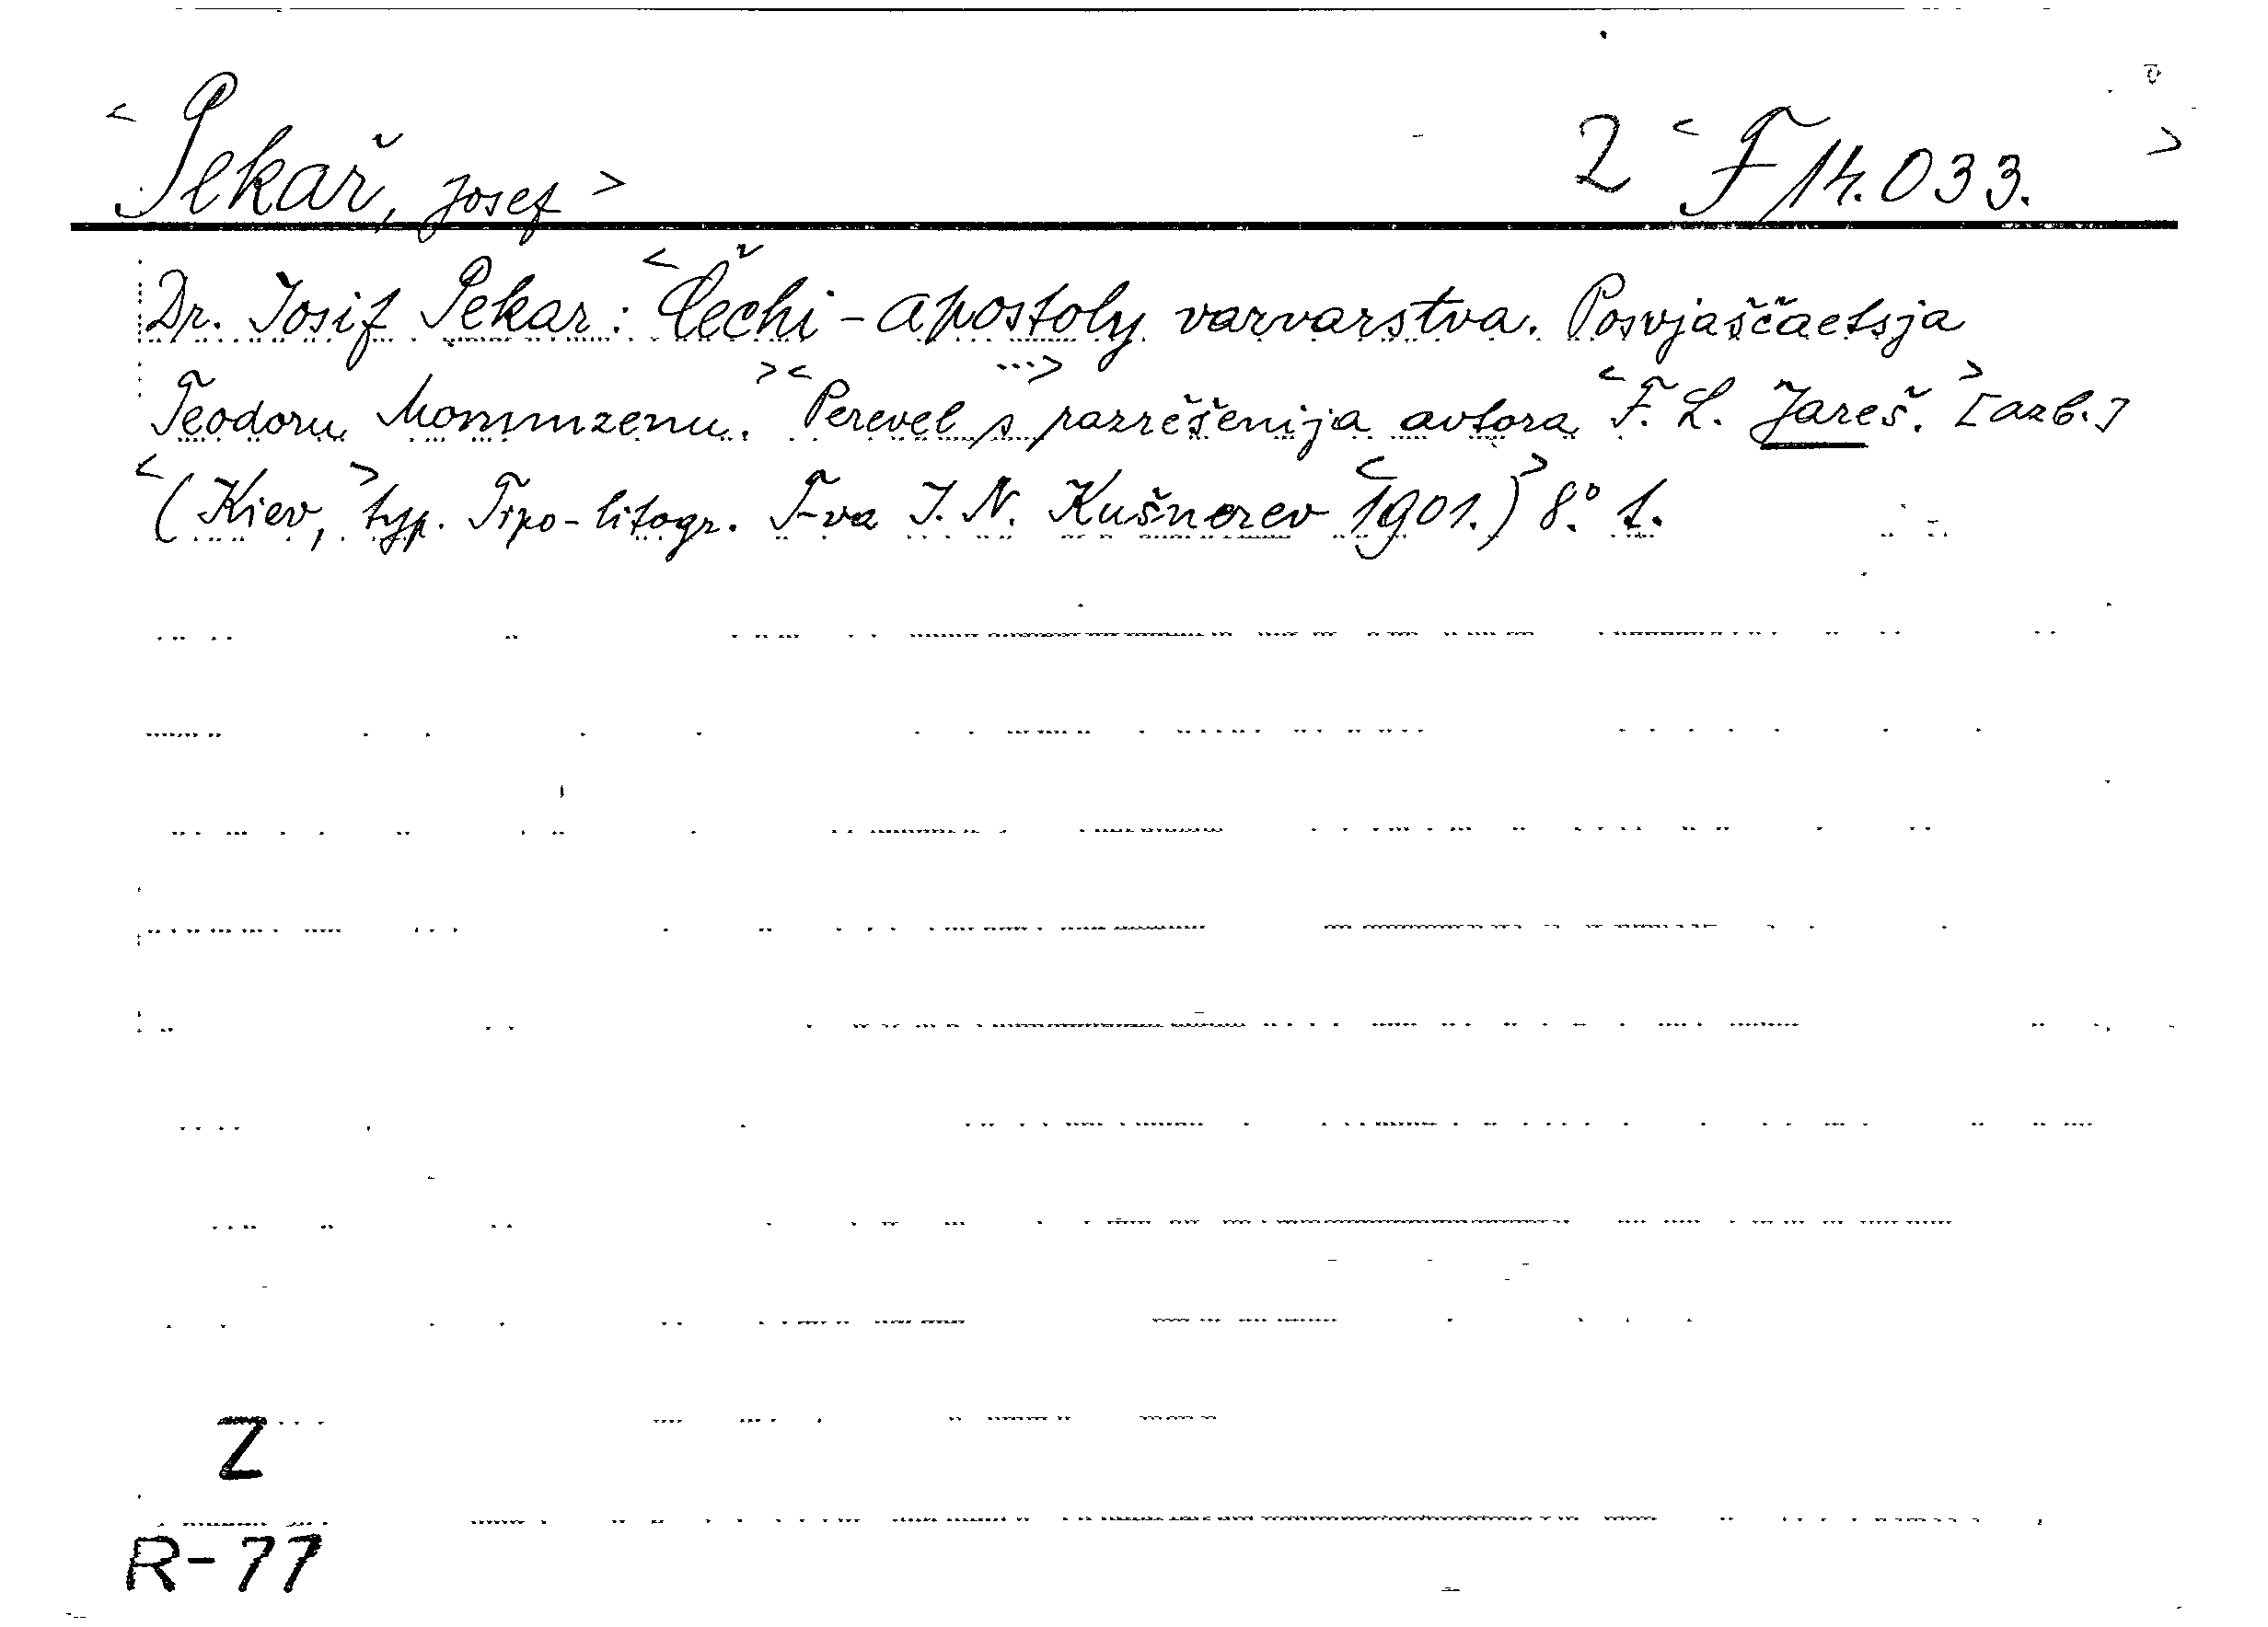 <Pekař, Josef> 2 <F 14.033.>
Dr. Iosif Pekar: <Čechi - apostoly varvarstva. Posvjaščaetsja
Teodoru Mommzenu.> <Perevel ...> s razrěšenija avtora <F. L. Jareš.> [azb.]
<(Kiev,> typ. Tipo-litogr. T-va I. N. Kušnerev <1901.)> 8.° 1.
Z
R-77